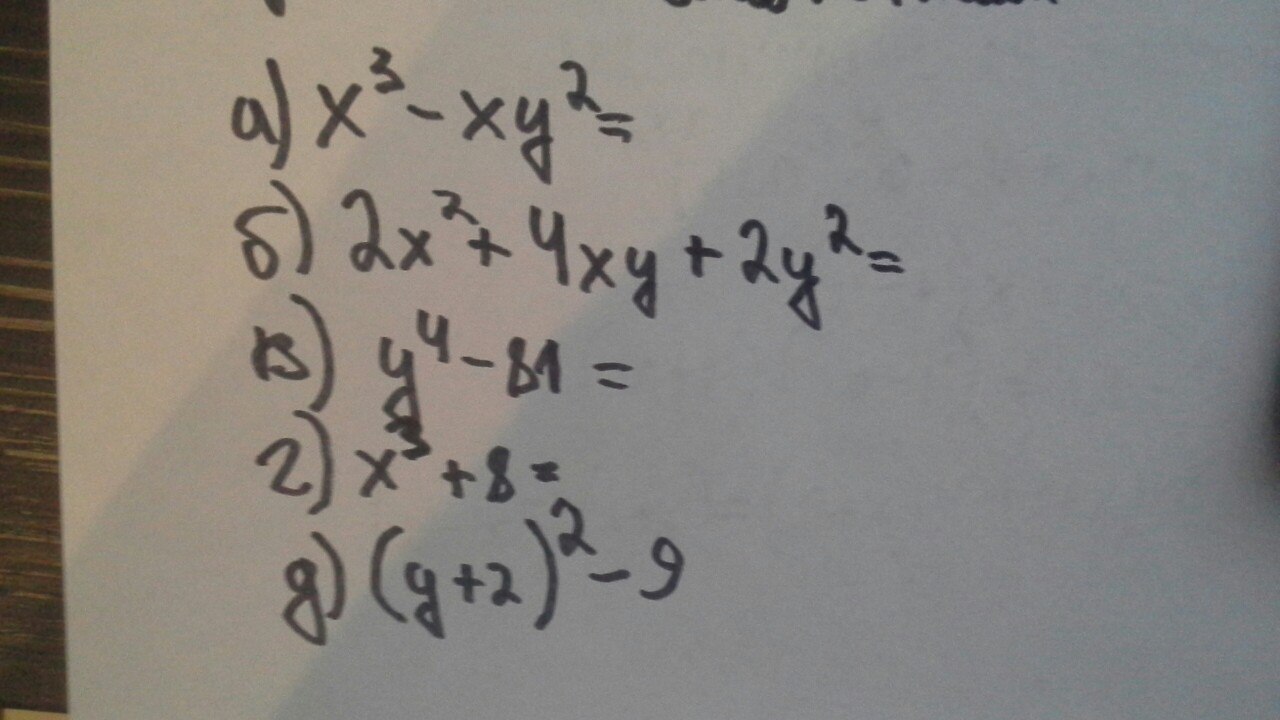 а) x³ - xy² =
б) 2x² + 4xy + 2y² =
в) y⁴ - 81 =
г) x³ + 8 =
д) (y+2)² - 9